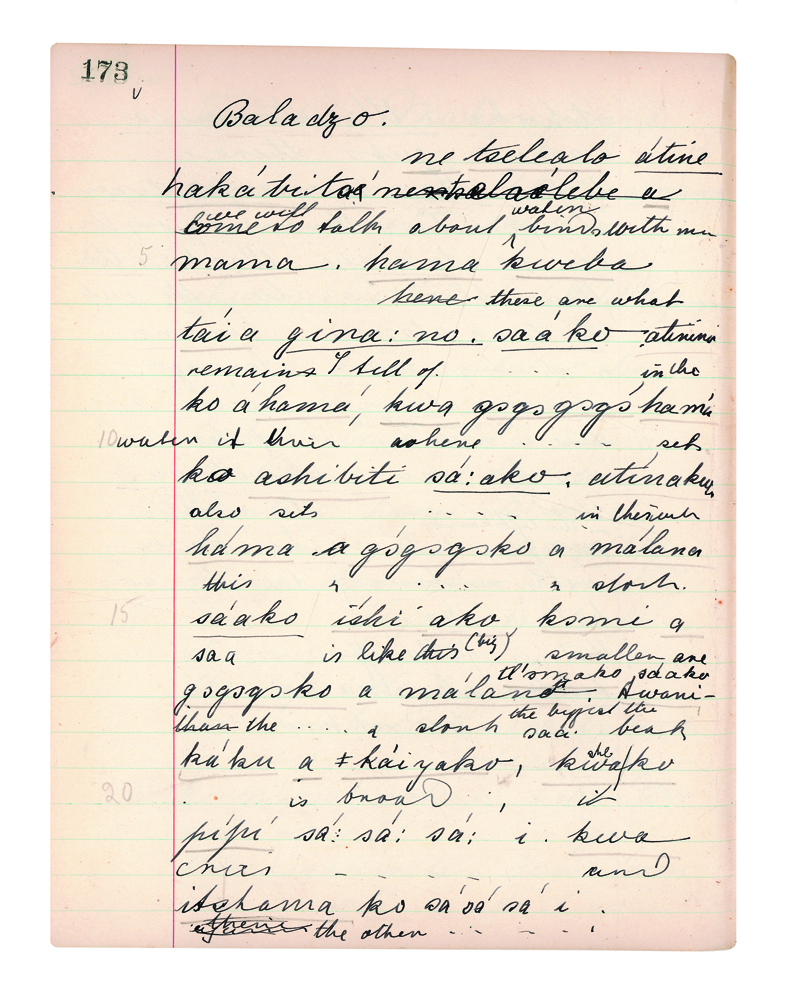 173
v
Baladzo.
ne tselealo átine
hakábitsé
we will water
come to talk about birds with
5
mama. hama kweba
here these are what
táia gina: no. saáko
remains I tell of. . . . . in the
ko áhamá, kwa gsgsgsgs hamá
10 water it their where . . . . sets
ko ashibiti sá:ako. atinakwa
also sets . . . . in the
háma a gsgsgsko a málana
this " . . . " stork.
15
sáako íshi ako, ksmi a
saa is like this (big) smaller are
sáako
gsgsgsko a
than the . . . . & stork the biggest the saa. beak
káku a ǂkáiyako, kwa ko
she
20
is broad . , it
pípí sá: sá: sá: i. kwa
cries - - - - and
itshama ko sá sá i.
the other . . - - .